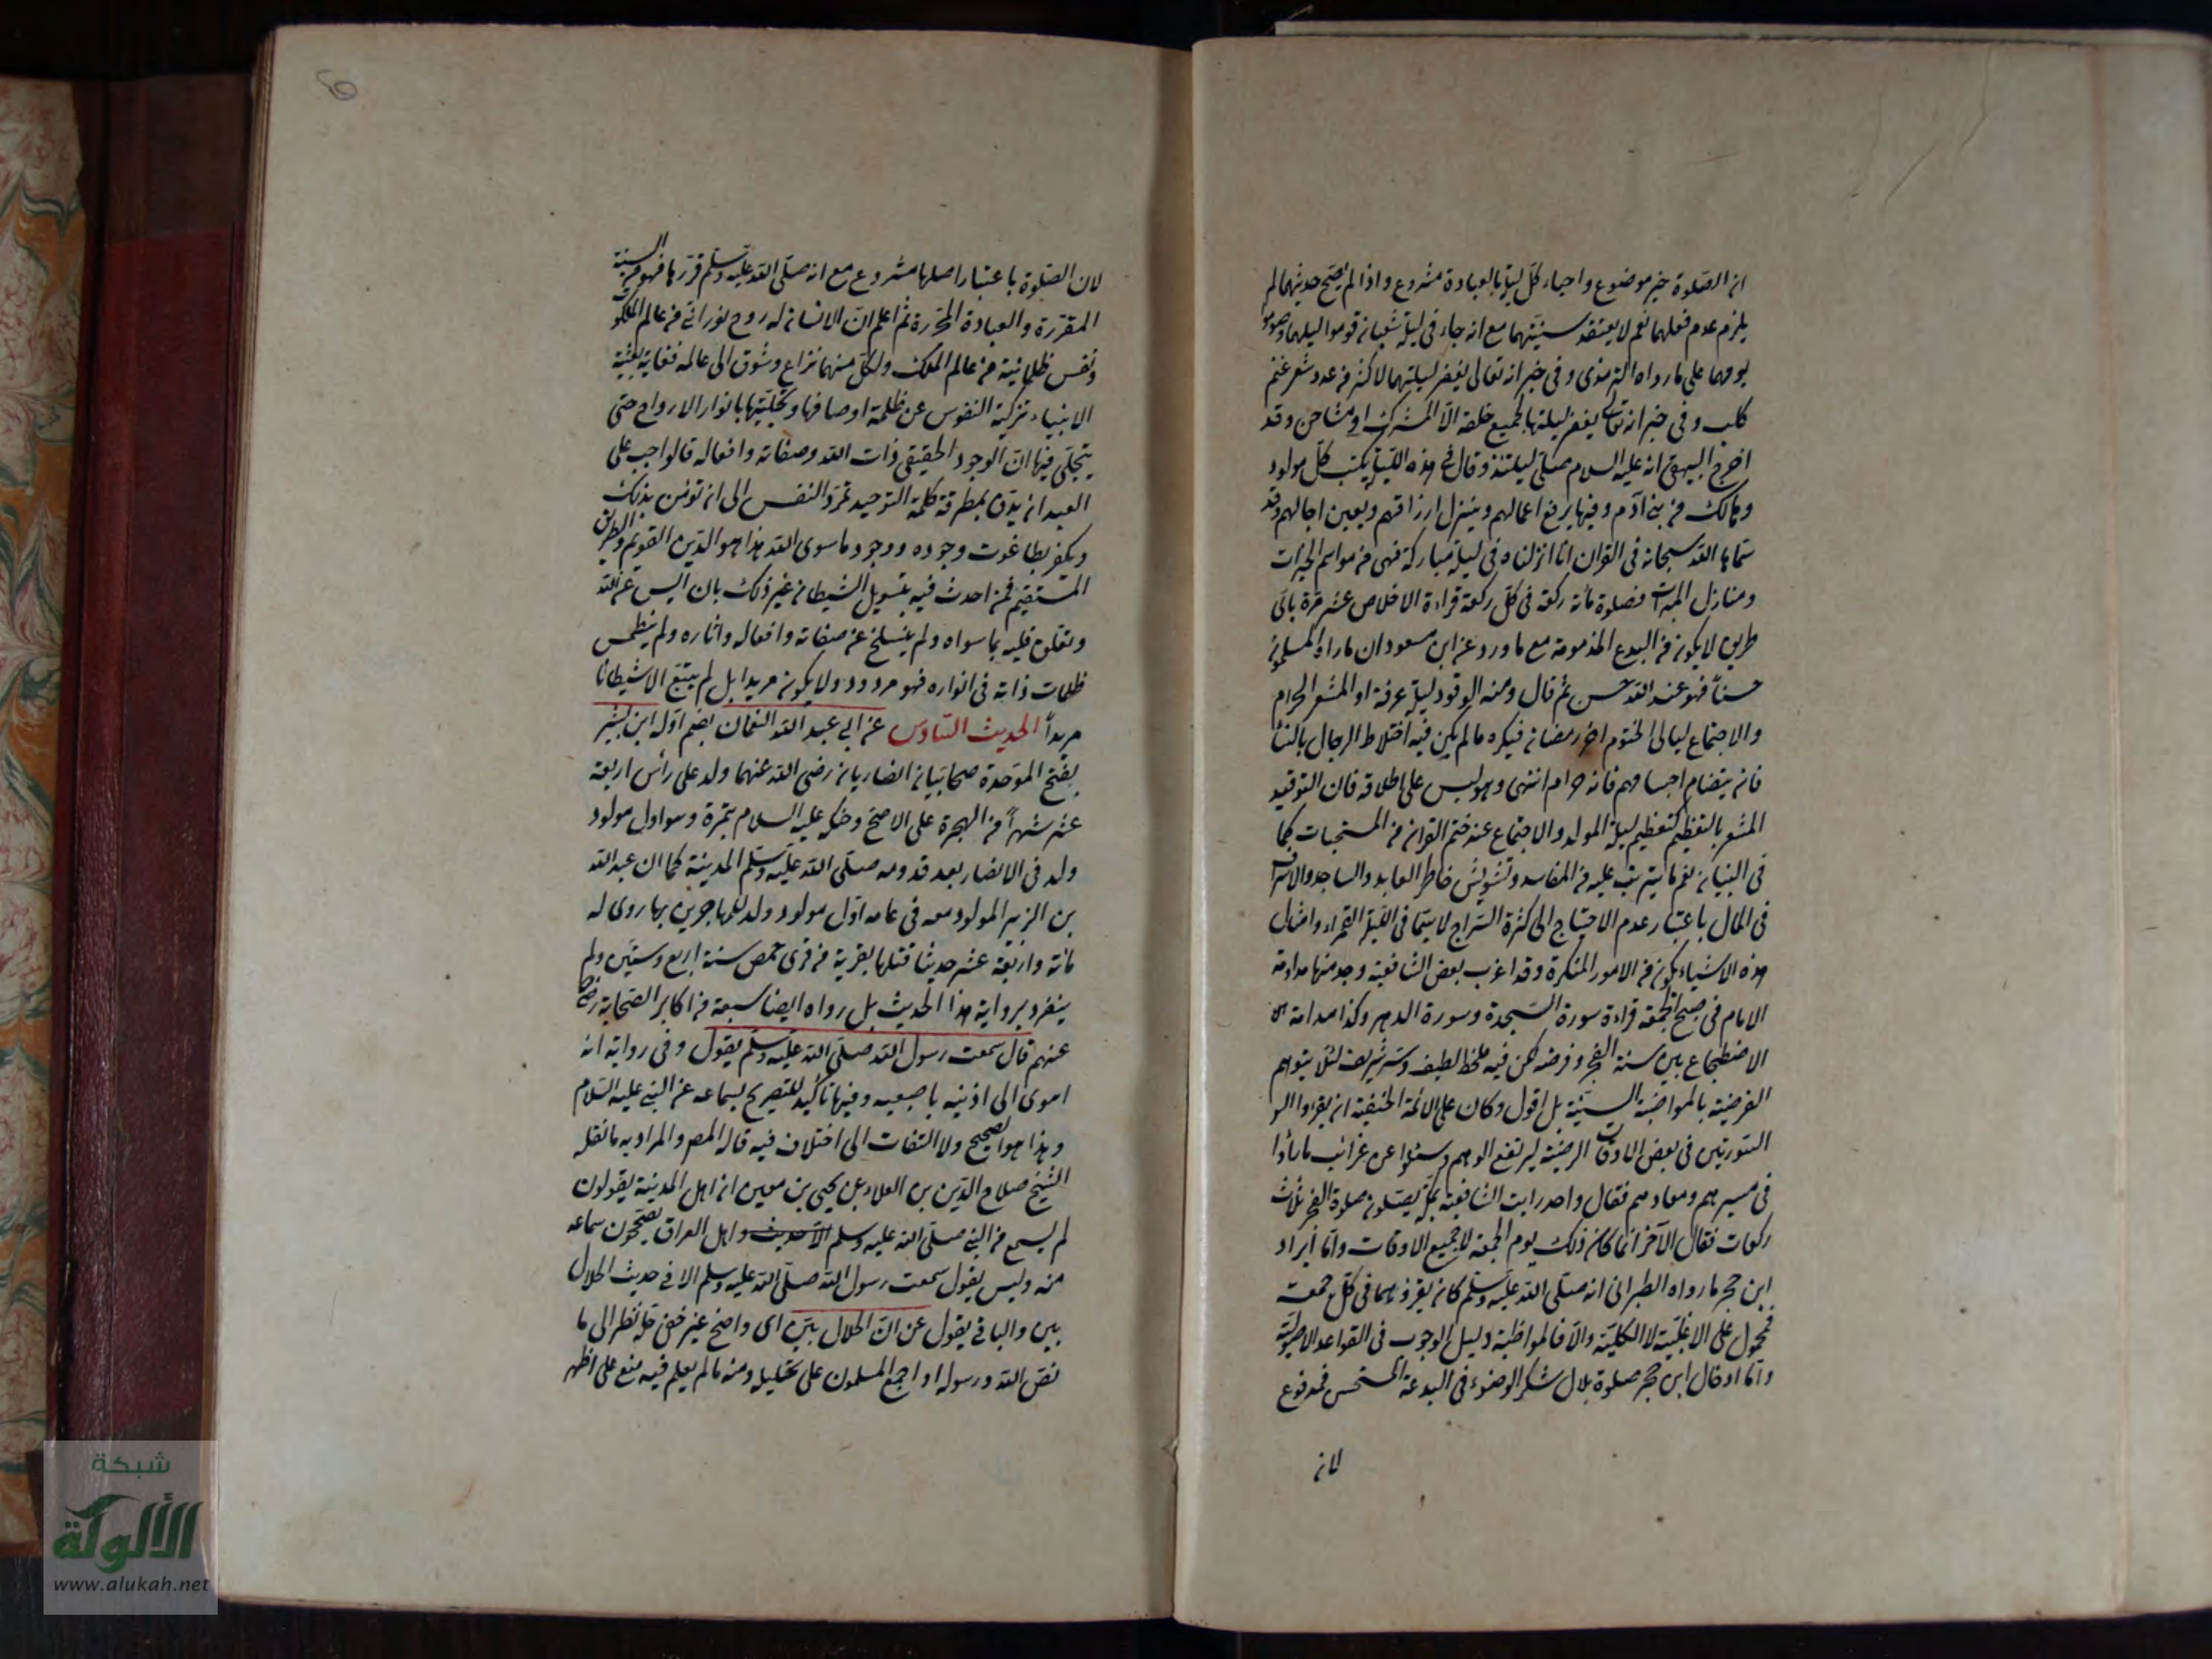 ان الصلوة خير موضوع واحياء كل ليلة بالعبادة مشروع واذا لم يصح حديثهما لم
يلزم عدم فعلهما نعم لا يعتقد سنيتهما مع انه جاء في ليلة شعبان قوموا ليلها وصوموا
يومها على ما رواه الترمذي وفي خبر انه تعالى يغفر ليلتها لاكثر من عدد شعر غنم
كلب وفي خبر انه تعالى يغفر ليلتها لجميع خلقه الا المشرك او مشاحن وقد
اخرج البيهقي انه عليه السلام صلى ليلتئذ وقال في هذه الليلة يكتب كل مولود
وهالك من بني آدم وفيها يرفع اعمالهم وينزل ارزاقهم ويعين اجالهم وقد
سماها الله سبحانه في القران انا انزلناه في ليلة مباركة فهي من مواسم الخيرات
ومنازل المبرات فصلوة مائة ركعة في كل ركعة قراءة الاخلاص عشر مرة باي
طريق لا يكون من البدع المذمومة مع ما ورد عن ابن مسعود ان ما راه المسلمون
حسنا فهو عند الله حسن ثم قال ومنه الوقود ليلة عرفة او المشعر الحرام
والاجتماع ليالي الختوم اخر رمضان فيكره ما لم يكن فيه اختلاط الرجال بالنسا
فان يتضام اجسامهم فانه حرام انتهى وهو ليس على اطلاقه فان التوقيد
المشعر بالتعظيم كتعظيم ليلة المولد والاجتماع عند ختم القران من المستحبات كما
في البنيان نعم ما يترتب عليه من المفاسد وتشويش خاطر العابد والساجد والاسراف
في المال باعتبار عدم الاحتياج الى كثرة السراج لا سيما في الليلة القمراء وامثال
هذه الاشياء يكون من الامور المنكرة وقد اغرب بعض الشافعية وجد منها مداومة
الامام في صبح الجمعة قراءة سورة السجدة وسورة الدهر وكذا مداومة
الاضطجاع بين سنة الفجر وفرضه لكن فيه ملحظ لطيف وسر شريف لئلا يتوهم
الفرضية بالمواظبة السنية بل اقول وكان على الائمة الحنفية ان يقرؤا
السورتين في بعض الاوقات المرضية ليرتفع الوهم وسئلوا عن غرائب ما رأوا
في مسيرهم ومعادهم فقال واحد رايت الشافعية بمكة يصلون صلوة الفجر ثلاث
ركعات فقال الآخر انما كان ذلك يوم الجمعة لا جميع الاوقات واما ايراد
ابن حجر ما رواه الطبراني انه صلى الله عليه وسلم كان يقرؤهما في كل جمعة
فمحمول على الاغلبية لا الكلية والا فالمواظبة دليل الوجوب في القواعد الاصولية
واما ادخال ابن حجر صلوة بلال شكر الوضوء في البدعة المستحسن فمدفوع
لان
لان الصلوة باعتبار اصلها مشروع مع انه صلى الله عليه وسلم قررها فهو من السنة
المقررة والعبادة المحررة ثم اعلم ان الانسان له روح نوراني من عالم الملكوت
ونفس ظلمانية من عالم الملك ولكل منهما نزاع وشوق الى عالمه فغاية بعثة
الانبياء تزكية النفوس عن ظلمة اوصافها وتحليتها بانوار الارواح حتى
يتجلى فيها ان الوجود الحقيقي ذات الله وصفاته وافعاله قالواجب على
العبد ان يدق بمطرقة كلمة التوحيد تمرد النفس الى ان تؤمن بذلك
ويكفر بطاغوت وجوده ووجود ما سوى الله هذا هو الدين القويم والطريق
المستقيم فمن احدث فيه بتسويل الشيطان غير ذلك بان ايس عن الله
وتعلق قلبه بما سواه ولم ينسلخ عن صفاته وافعاله واثاره ولم ينطمس
ظلمات ذاته في انواره فهو مردود ولا يكون مريدا بل لم يتبع الا شيطانا
مريداً الحديث السادس عن ابي عبد الله النعمان بضم اوله ابن بشير
بفتح الموحدة صحابيان انصاريان رضي الله عنهما ولد على رأس اربعة
عشر شهراً من الهجرة على الاصح وحنكه عليه السلام بتمرة وهو اول مولود
ولد في الانصار بعد قدومه صلى الله عليه وسلم المدينة كما ان عبد الله
بن الزبير المولود معه في عامه اول مولود ولد للمهاجرين بها روى له
مائة واربعة عشر حديثا قتلها بقرية من قرى حمص سنة اربع وستين ولم
ينفرد برواية هذا الحديث بل رواه ايضا سبعة من اكابر الصحابة رضي الله
عنهم قال سمعت رسول الله صلى الله عليه وسلم يقول وفي رواية انه
اهوى الى اذنيه باصبعيه وفيها تأكيد للتصريح بسماعه عن النبي عليه السلام
وهذا هو الصحيح ولا التفات الى اختلاف فيه قاله المصـ والمراد به ما نقله
الشيخ صلاح الدين بن العلاء عن يحيى بن معين ان اهل المدينة يقولون
لم يسمع من النبي صلى الله عليه وسلم واهل العراق يصححون سماعه
منه وليس يقول سمعت رسول الله صلى الله عليه وسلم الا في حديث الحلال
بين والباقي يقول عن ان الحلال بين اى واضح غير خفي حله نظرا الى ما
نص الله ورسوله او اجمع المسلمون على تحليله ومنه ما لم يعلم فيه منع على اظهر
شبكة
الألوكة
www.alukah.net